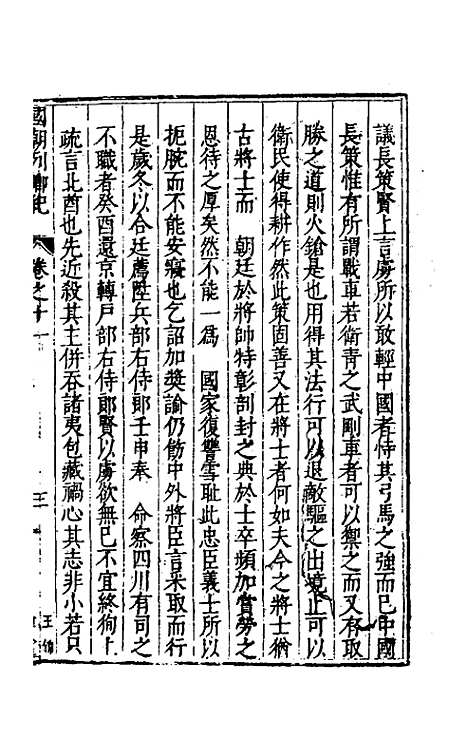 議長策賢上言虜所以敢輕中國者恃其弓馬之強而已中國
長策惟有所謂戰車若衛青之武剛車者可以禦之而又有取
勝之道則火鎗是也用得其法行可以退敵驅之出遠止可以
衛民使得耕作然此策固善又在將士者何如夫今之將士猶
古將士而　朝廷於將帥特彰剖封之典於士卒頻加賞勞之
恩待之厚矣然不能一為　國家復讐雪耻此忠臣義士所以
扼腕而不能安寢也乞詔加奬諭仍飭中外將臣言采取而行
是歲冬以合廷薦陞兵部右侍郎壬申奉　命察四川有司之
不職者癸酉還京轉戶部右侍郎賢以虜欲無已不宜終狥上
疏言北酋也先近殺其主併吞諸夷包藏禍心其志非小若只
國朝列卿紀　卷之十一